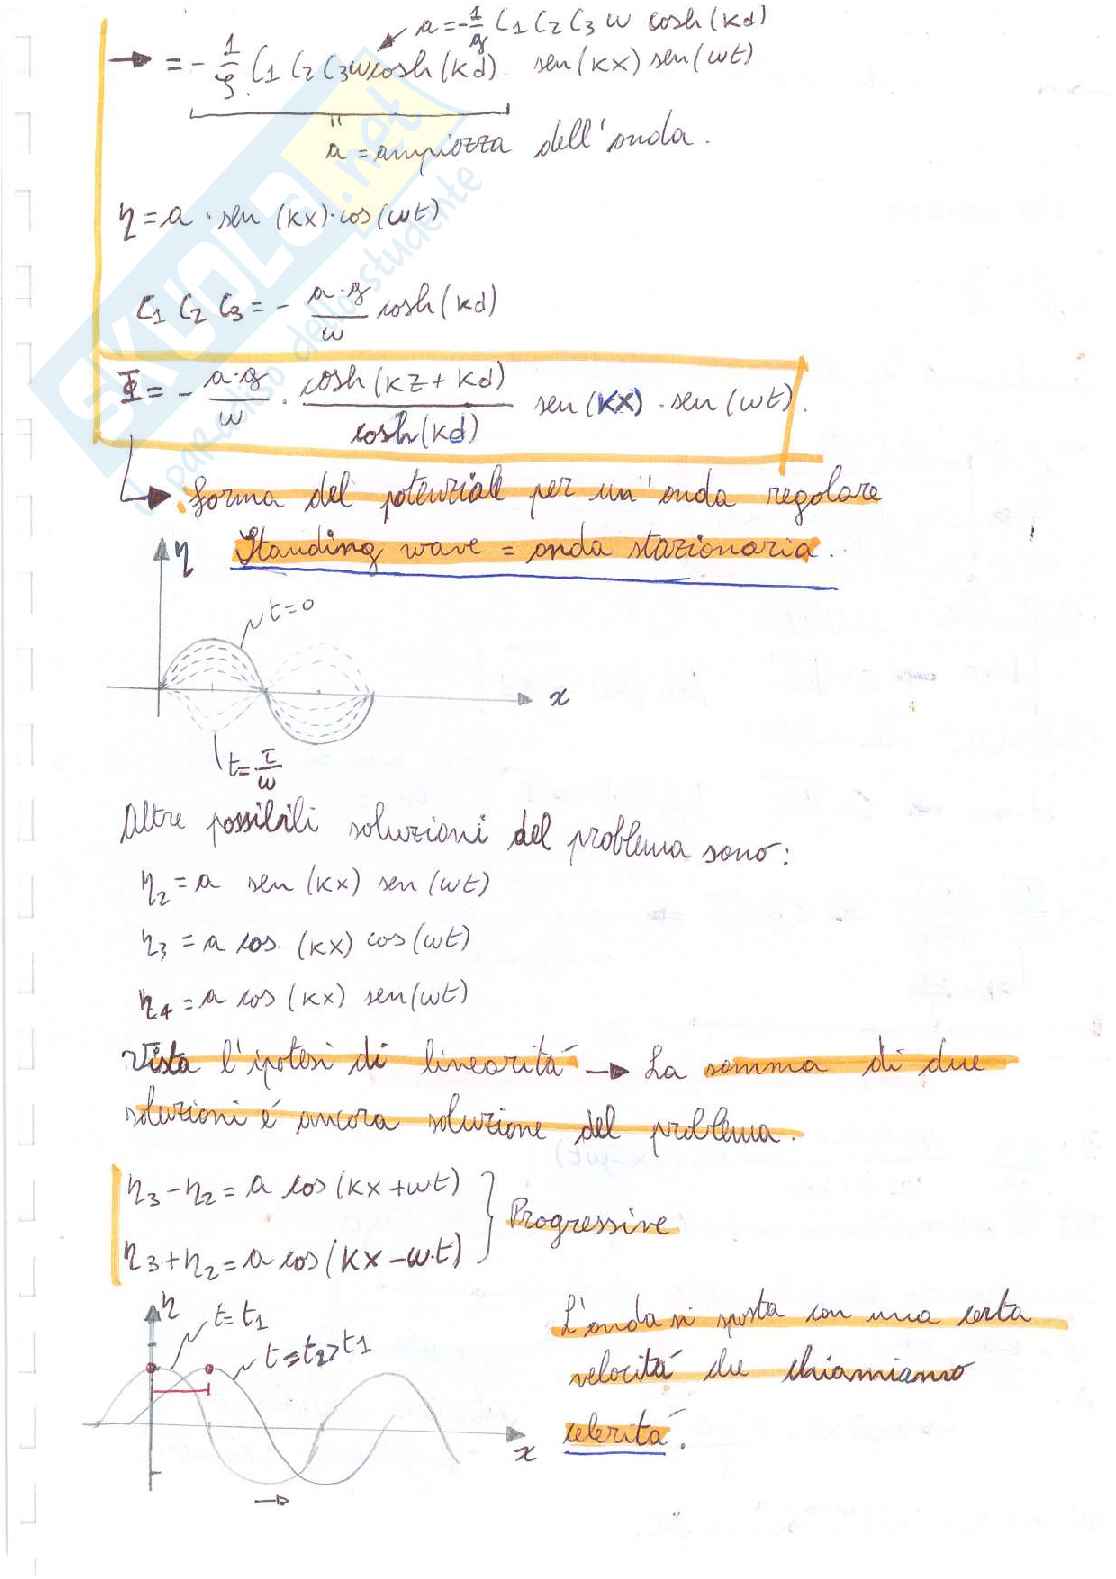 a = -1/g C1 C2 C3 ω cosh(kd)
→ = - 1/g C1 C2 C3 ω cosh(kd) sen(kx) sen(ωt)
"
a = ampiezza dell'onda.
η = a · sen (kx) · cos(ωt)
C1 C2 C3 = - a·g/ω cosh(kd)
Φ = - a·g/ω · cosh(kz + kd)/cosh(kd) sen(kx) · sen(ωt).
↳ forma del potenziale per un'onda regolare
Standing wave = onda stazionaria.
η
t=0
x
t = π/ω
Altre possibili soluzioni del problema sono:
η2 = a sen (kx) sen (ωt)
η3 = a cos (kx) cos (ωt)
η4 = a cos (kx) sen(ωt)
Vista l'ipotesi di linearitá → La somma di due
soluzioni é ancora soluzione del problema.
η3 - η2 = a cos (kx + ωt)
Progressive
η3 + η2 = a cos (kx - ω·t)
η
t = t1
t = t2 > t1
L'onda si sposta con una certa
velocitá che chiamiamo
celeritá.
x
SKUOLA.net
il paradiso dello studente